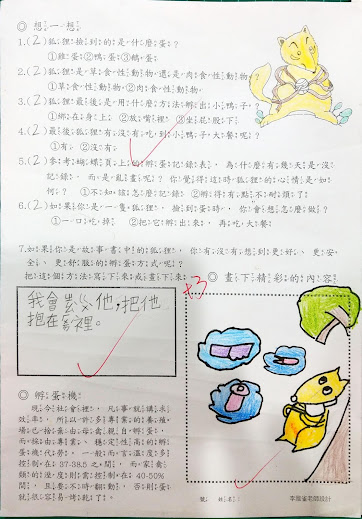 ◎想一想
1.(2)狐狸撿到的是什麼蛋?
①雞蛋②鴨蛋③鵝蛋
2.(2)狐狸是草食性動物,還是肉食性動物?
①草食性動物②肉食性動物
3.(2)狐狸最後是用什麼方法孵出小鴨子?
①綁在身上②放嘴裡③坐屁股下
4.(2)最後狐狸有沒有吃到小鴨子大餐呢?
①有②沒有
5.(2)參考蝴蝶頁上的孵蛋記錄表,為什麼有幾天是沒
記錄,而是亂畫呢?你覺得這時狐狸的心情是如
何?①不知該怎麼記錄②孵得有點不耐煩了
6.(2)如果你是一隻狐狸,撿到蛋時,你會想怎麼做?
①一口吃掉②把它孵出來,再吃大餐
7.如果你是故事書中的狐狸,你有沒有想到更好、更安
全、更舒服的孵蛋方式呢?
把這個方法寫下來或畫下來
◎畫下精彩的內容
+3
他,把他
抱在 裡。
◎孵蛋機:
現今社會裡,凡事就講求
效率,所以許多專業的養殖
場已捨棄由母禽親自孵蛋,
而採由專業、穩定性高的孵
蛋機代勞,一般而言溫度多
控制在37-38.5之間,而家禽
類的溼度則需控制在40-50%
間,且要不時翻動,否則蛋
就很容易烤乾了!
號 姓名:
李國雀老師設計